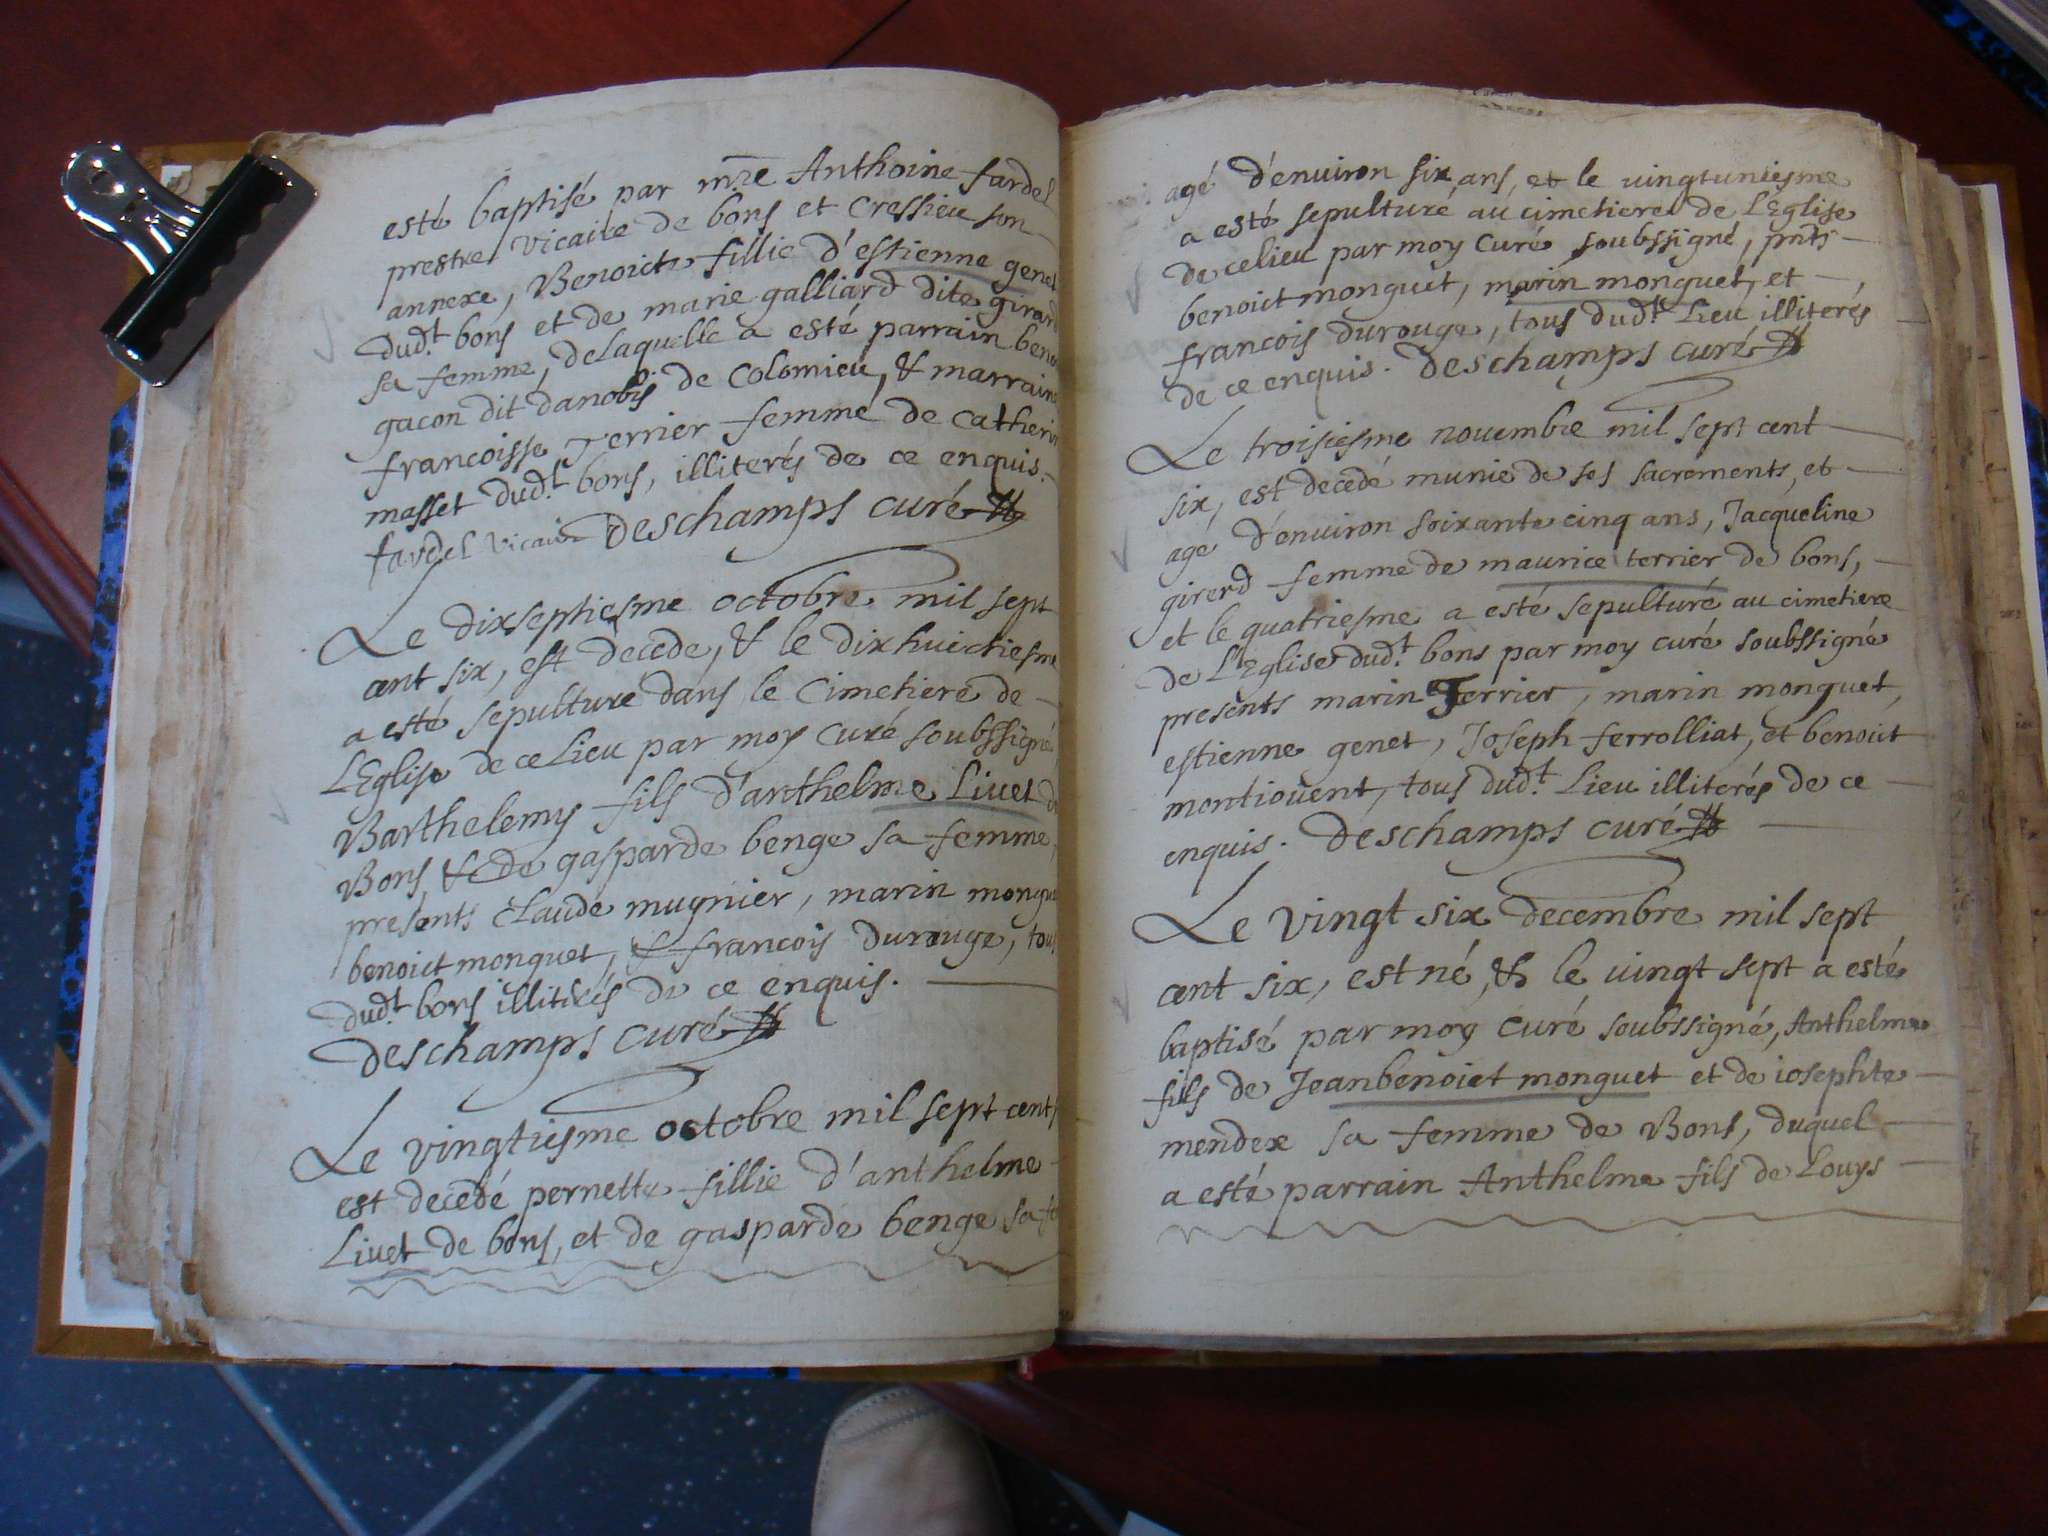 esté baptisé par mre Anthoine fardel
prestre vicaire de bons et Cressieu son
annexe, Benoicte fillie d'estienne genet
dudt bons et de marie galliard dite girard
sa femme, delaquelle a esté parrain
gacon dit danobis de Colomieu, & marraine
francoisse Terrier femme de
masset dudt bons, illiterés de ce enquis.
fardel vicaire Deschamps curé
Le dixseptiesme octobre mil sept
cent six, est decede, & le dixhuictiesme
a esté sepulture dans le Cimetiere de
L'Eglise de ce Lieu par moy Curé soubssigné,
Barthelemy fils d'anthelme Livet de
Bons, & de gasparde benge sa femme,
presents Claude mugnier, marin monguet
benoict monguet, & francois durouge, tous
dudt bons illiterés de ce enquis.
Deschamps Curé
Le vingtiesme octobre mil sept cent
est decedé pernette fillie d'anthelme
Livet de bons, et de gasparde benge sa
agé d'environ six ans, et le vingtuniesme
a esté sepulturé au cimetiere de L'Eglise
de ce lieu par moy Curé soubssigné, pnts
benoict monguet, marin monguet, et
francois durouge, tous dudt Lieu illiterés
de ce enquis. Deschamps curé
Le troisiesme novembre mil sept cent
six, est decedé munie de ses sacrements, et
age d'environ soixante cinq ans, Jacqueline
girerd femme de maurice terrier de bons,
et le quatriesme a esté sepulturé au cimetiere
de L'Eglise dudt bons par moy curé soubssigné
presents marin Terrier, marin monguet,
estienne genet, Joseph ferrolliat, et benoict
montiouent, tous dudt Lieu illiterés de ce
enquis. Deschamps curé
Le vingt six decembre mil sept
cent six, est né, & le vingt sept a esté
baptisé par moy Curé soubssigné, Anthelme
fils de Jeanbenoict monguet et de iosephte
mendex sa femme de Bons, duquel
a esté parrain Anthelme fils de Louys